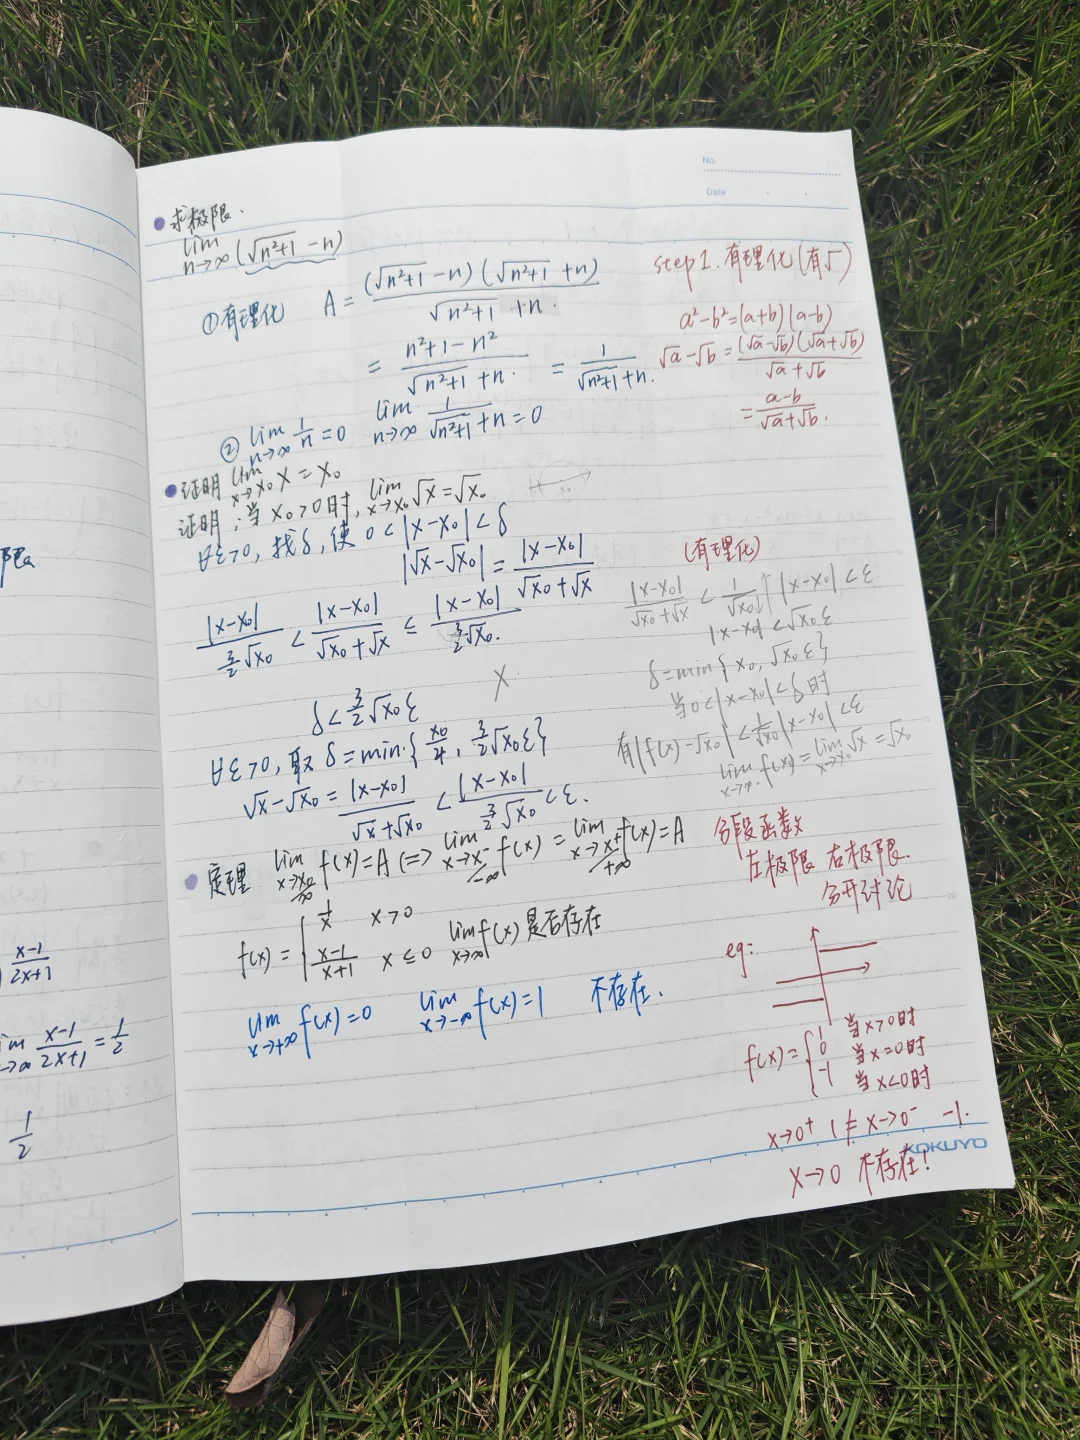 No.
Date
求极限.
lim n→∞ (√n²+1 -n)
step1.有理化(有√)
①有理化 A = (√n²+1 -n)(√n²+1 +n) / √n²+1 +n.
= n²+1-n² / √n²+1 +n. = 1 / √n²+1 +n.
a²-b²=(a+b)(a-b)
√a-√b = (√a-√b)(√a+√b) / √a+√b
= a-b / √a+√b.
② lim n→∞ 1/n = 0 lim n→∞ 1/√n²+1 +n = 0
证明 lim x→x₀ x = x₀
证明：当x₀>0时, lim x→x₀ √x = √x₀
∀ε>0, 找δ, 使 0<|x-x₀|<δ
|√x-√x₀| = |x-x₀| / √x₀+√x
(有理化)
|x-x₀| / 3/2√x₀ < |x-x₀| / √x₀+√x ≤ |x-x₀| / 3/2√x₀.
X
δ<3/2√x₀ε
∀ε>0, 取 δ=min{x₀/4, 3/2√x₀ε}
√x-√x₀ = |x-x₀| / √x+√x₀ < |x-x₀| / 3/2√x₀ <ε.
|x-x₀| / √x₀+√x < 1/√x₀ |x-x₀|<ε
|x-x₀|<√x₀ε
δ=min{x₀, √x₀ε}
当0>|x-x₀|<δ时
有|f(x)-√x₀|<1/√x₀|x-x₀|<ε
lim f(x)=lim x→x₀ √x=√x₀
定理 lim x→x₀ ∞ f(x)=A <=> lim x→x₀⁻ -∞ f(x) = lim x→x₀⁺ +∞ f(x)=A
分段函数
左极限 右极限.
分开讨论
f(x)={ 1/x x>0
x-1/x+1 x≤0 lim x→∞ f(x) 是否存在
lim x→+∞ f(x)=0 lim x→-∞ f(x)=1 不存在.
eg:
f(x)={ 1 当x>0时
0 当x=0时
-1 当x<0时
x→0⁺ 1 ≠ x→0⁻ -1.
x→0 不存在!
KOKUYO
x-1/2x+1
x-1/2x+1 = 1/2
1/2